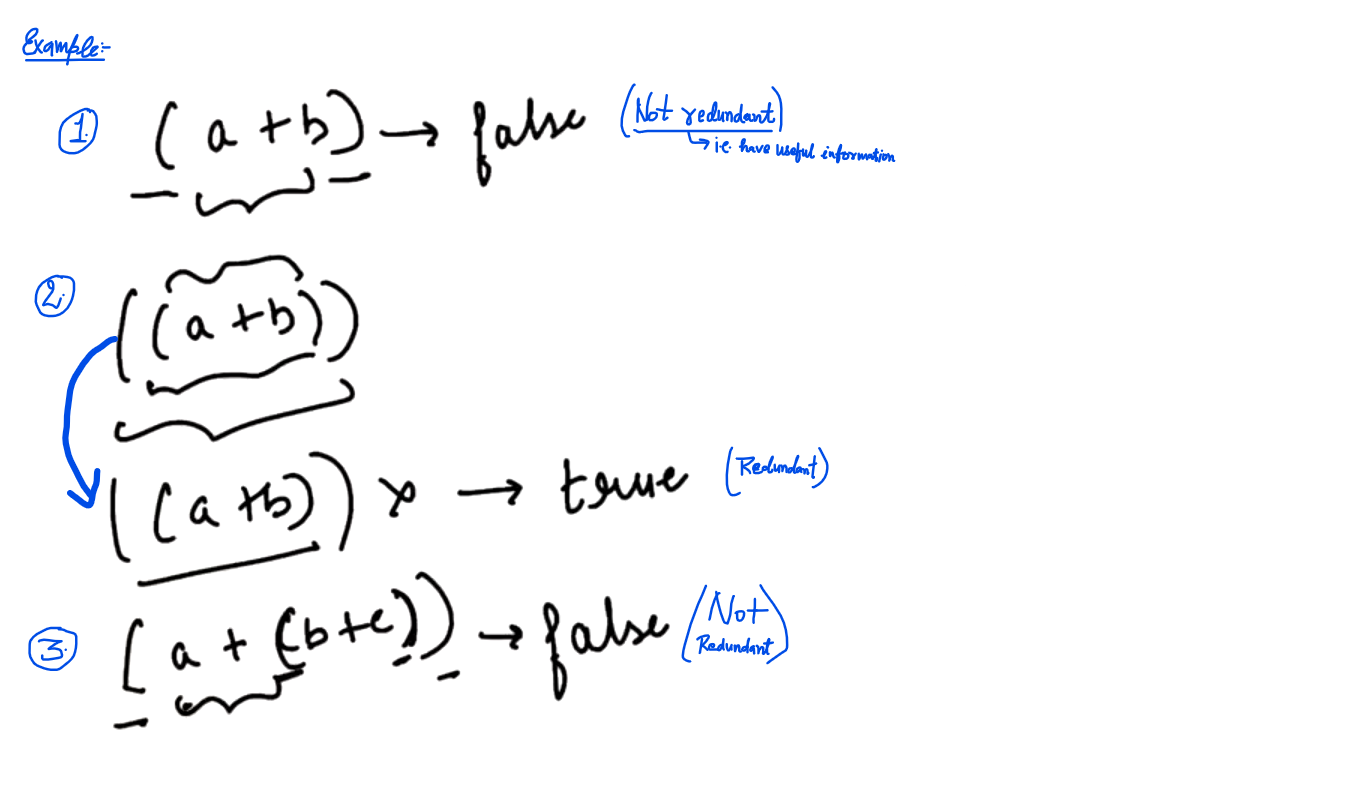 Example:-
1. (a+b) → false (Not redundant)
↳ i.e. have useful information
2. ((a+b))
((a+b)) x → true (Redundant)
3. (a+(b+c)) → false (Not
Redundant)